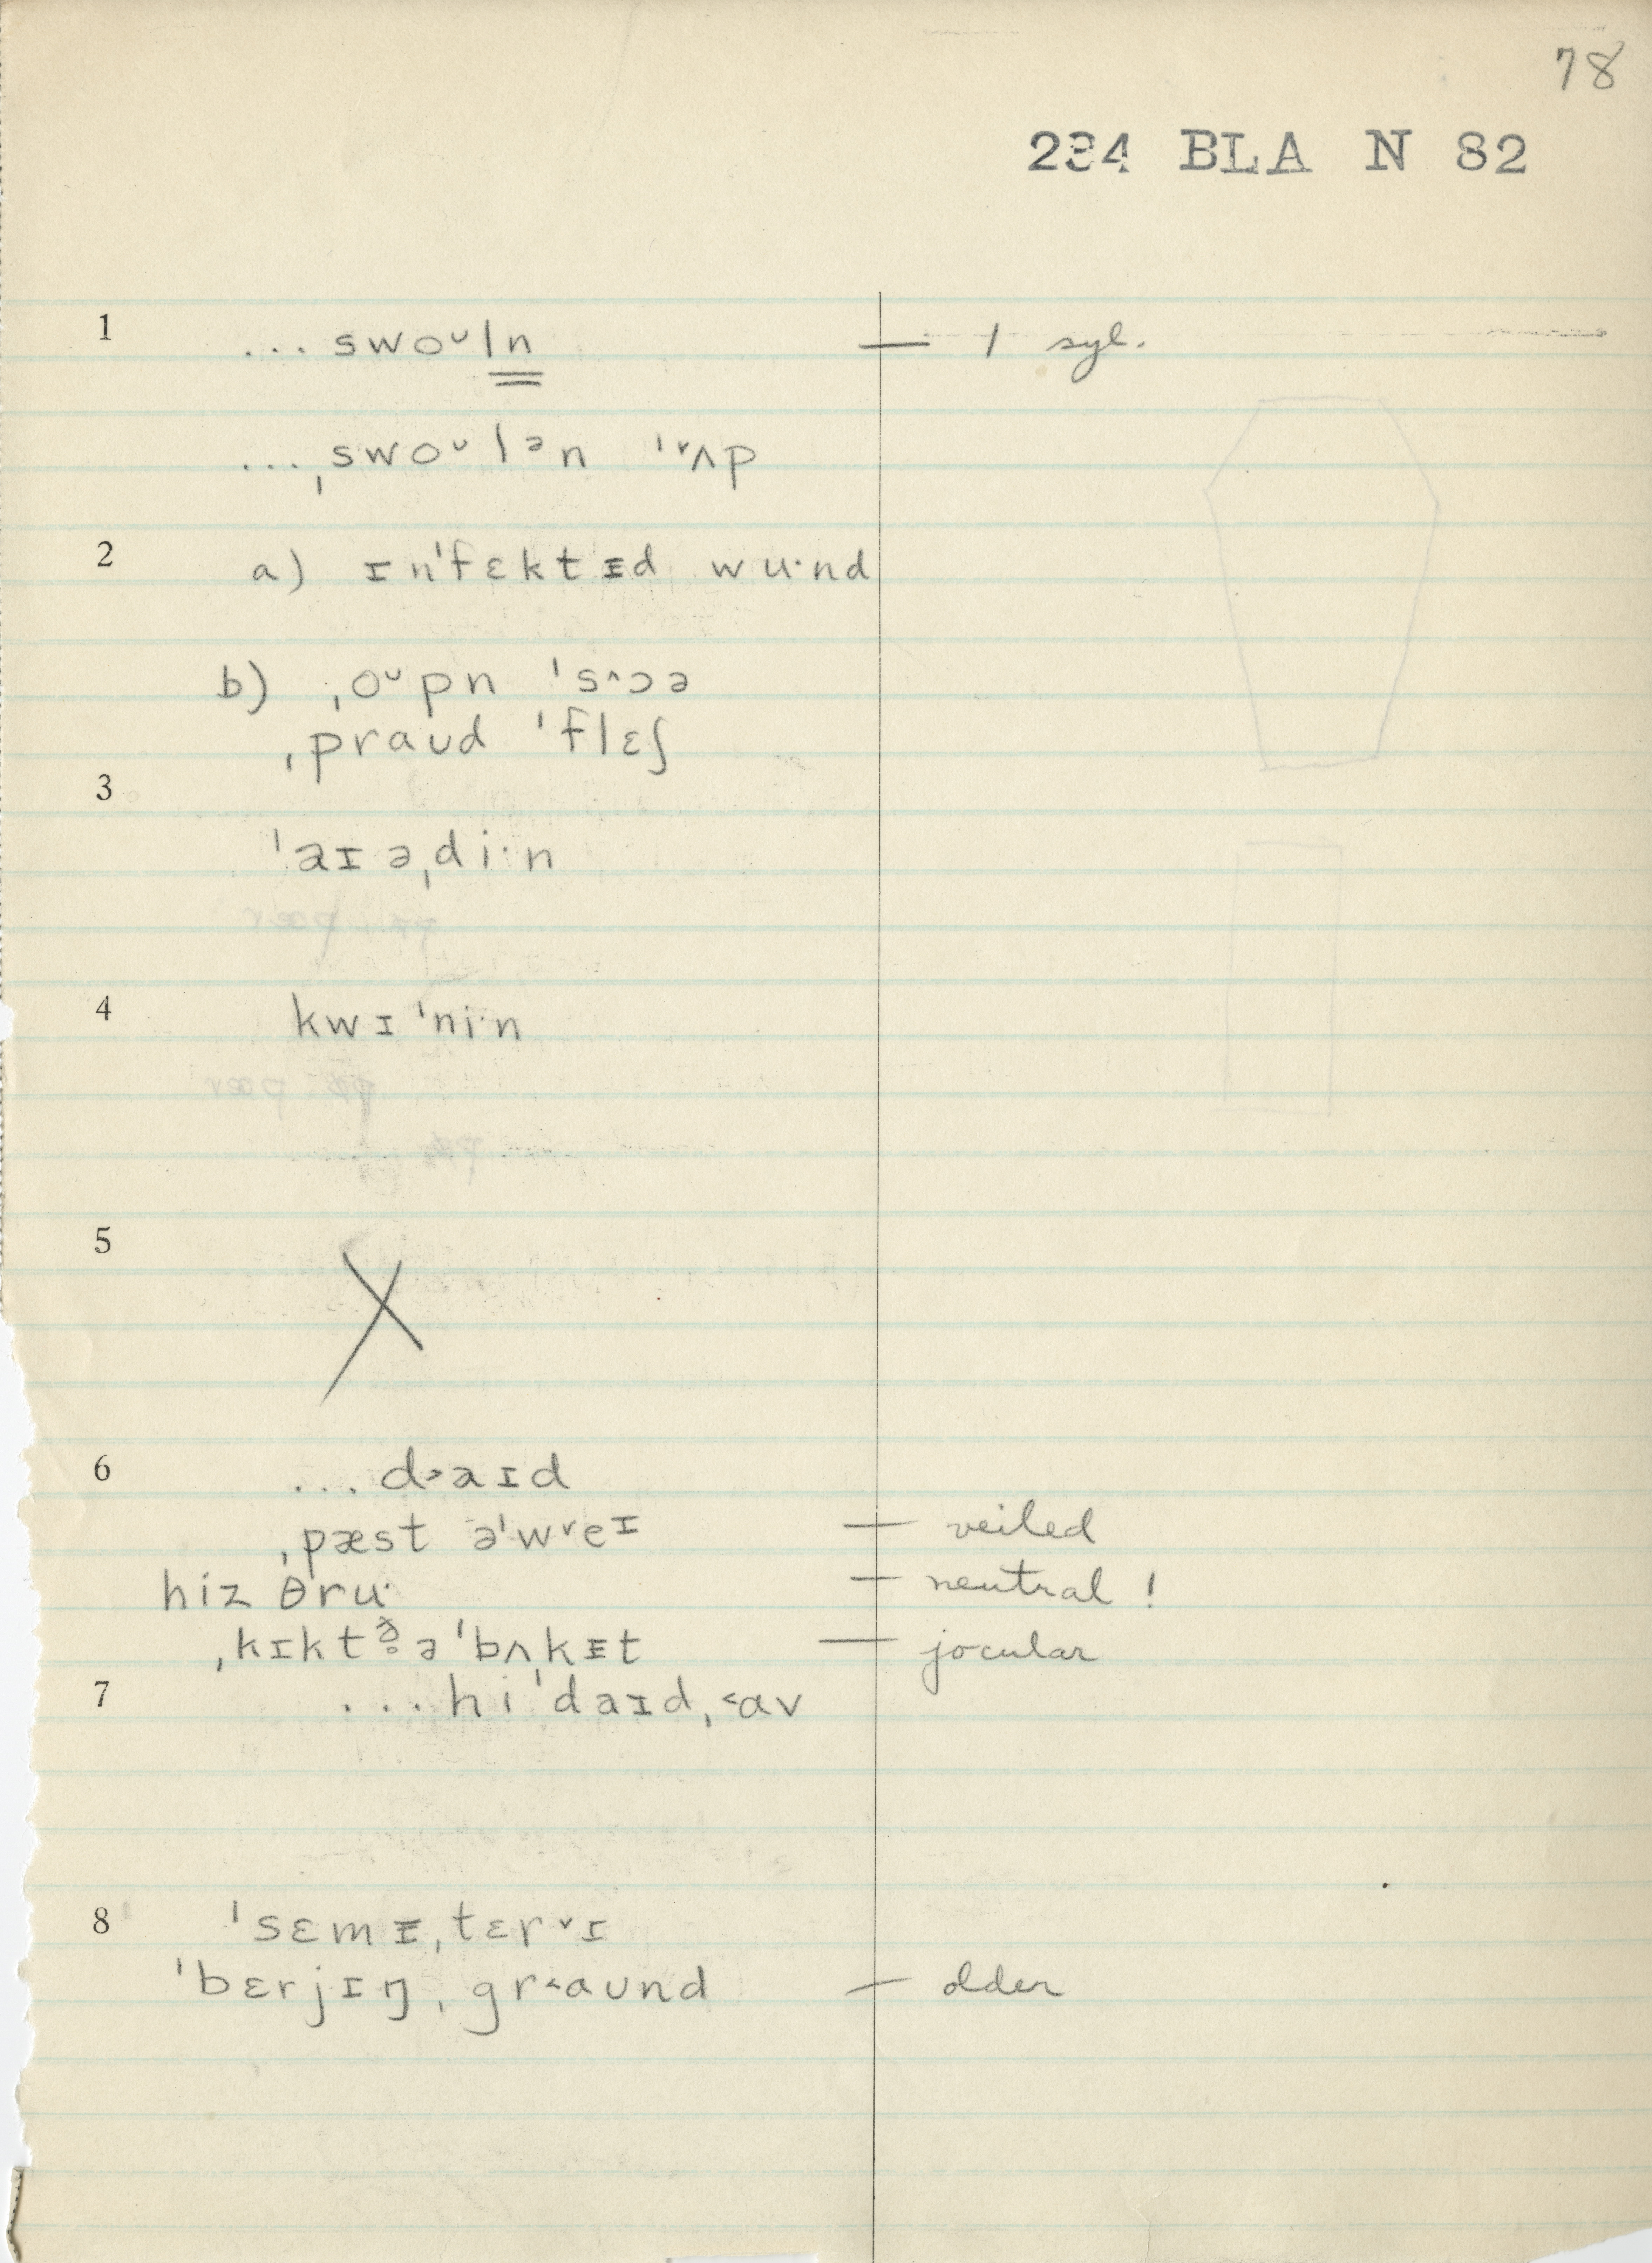 78
234 BLA N 82
1 ... swoᴗln — 1 syl.
...ˌswoᴗlᵊn ˈ˅ʌp
2 a) ɪnˈfɛktᵻd wu·nd
b) ˌoᴗpn ˈs^ɔə
ˌpraʊd ˈflɛʃ
3
ˈaɪəˌdi·n
4 kwɪˈni·n
5
X
6 ... d˃aɪd
ˌpæst əˈw˅eɪ — veiled
hiz θru· — neutral !
ˌkɪktð̥əˈbʌkᵻt — jocular
7 ... hiˈdaɪd,˂av
8 ˈsɛmᵻˌtɛr˅ɪ
ˈbɛrjɪŋˌgr˂aʊnd — older